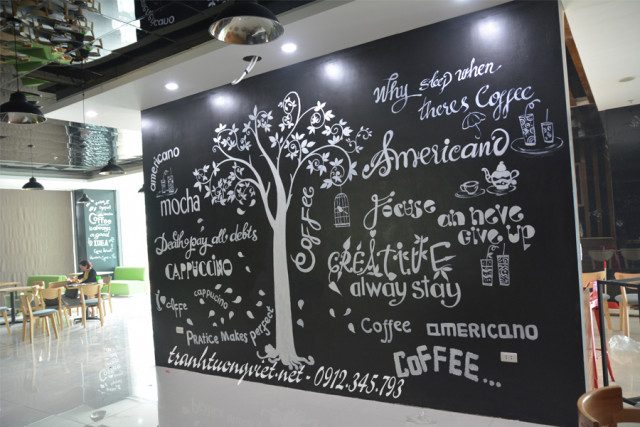 Why sleep when
theres Coffee
americano
Americano
mocha
Coffee
Focuse an neve
give up
Death pay all debts
CAPPUCCINO
CREATIVE
alway stay
cappucino
Caffe
Pratice makes perfect
Coffee americano
COFFEE...
tranhtuongviet.net - 0912.345.793
Coffee
is always
a good
IDEA